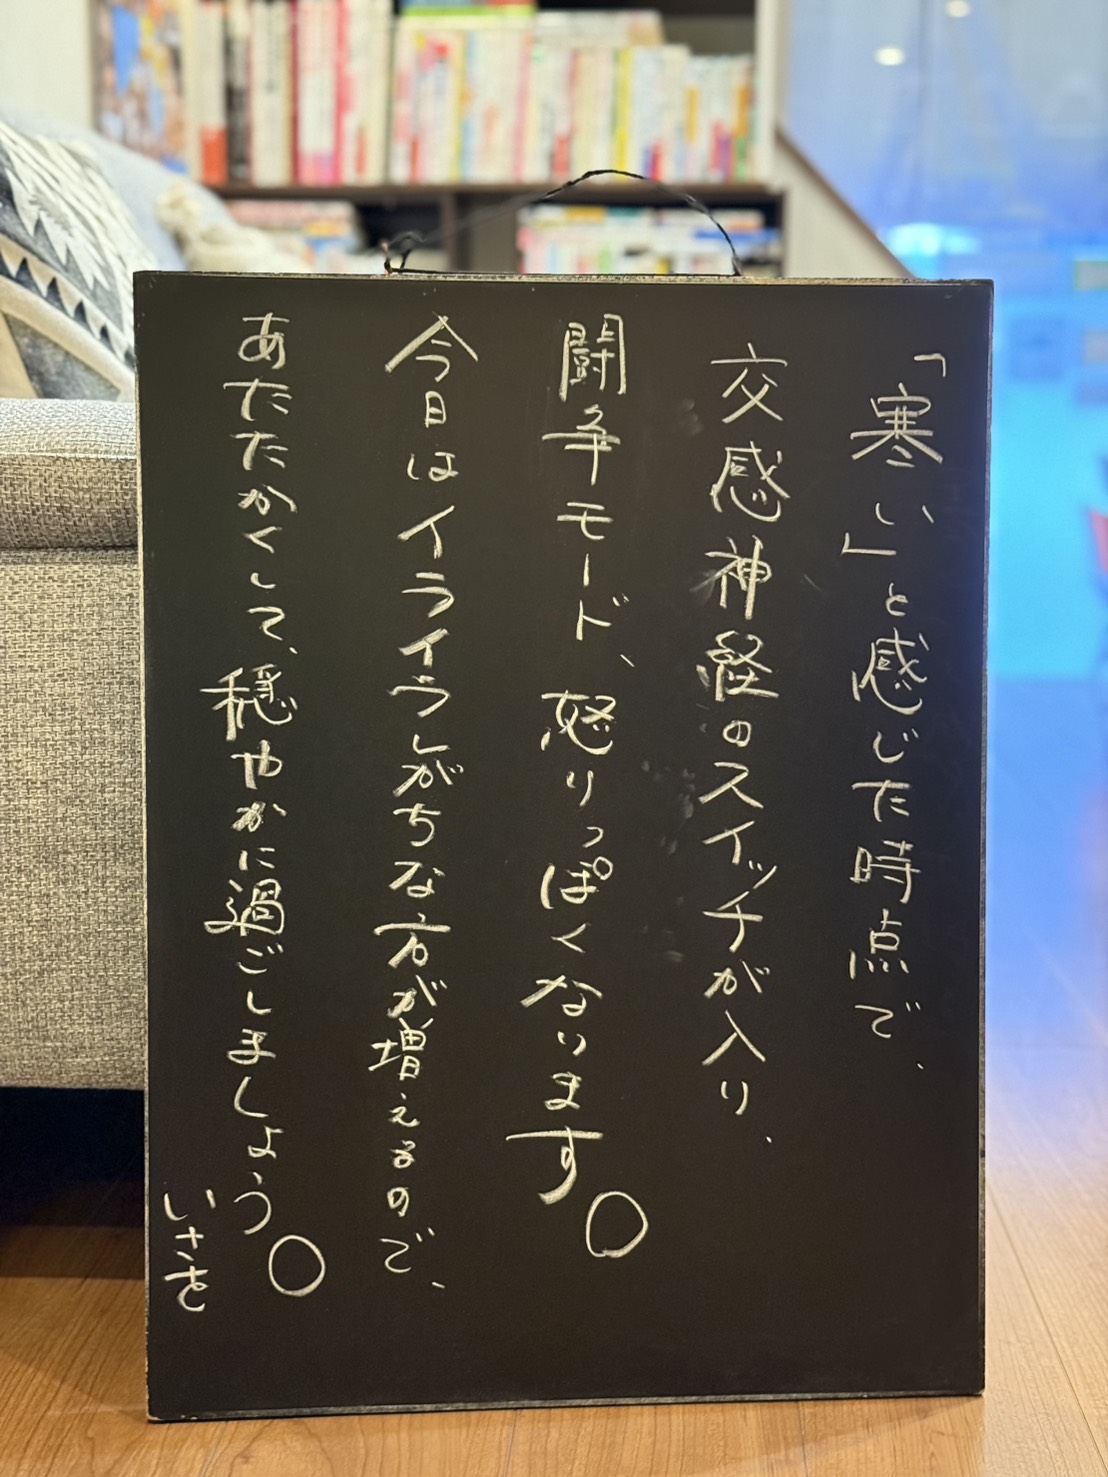 「寒い」と感じた時点で、
交感神経のスイッチが入り、
闘争モード、怒りっぽくなります。
今日はイライラしがちな方が増えるので、
あたたかくして、穏やかに過ごしましょう。
いさを